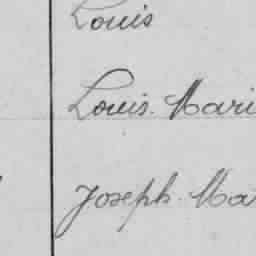 Louis
Louis. Mari
Joseph. Ma